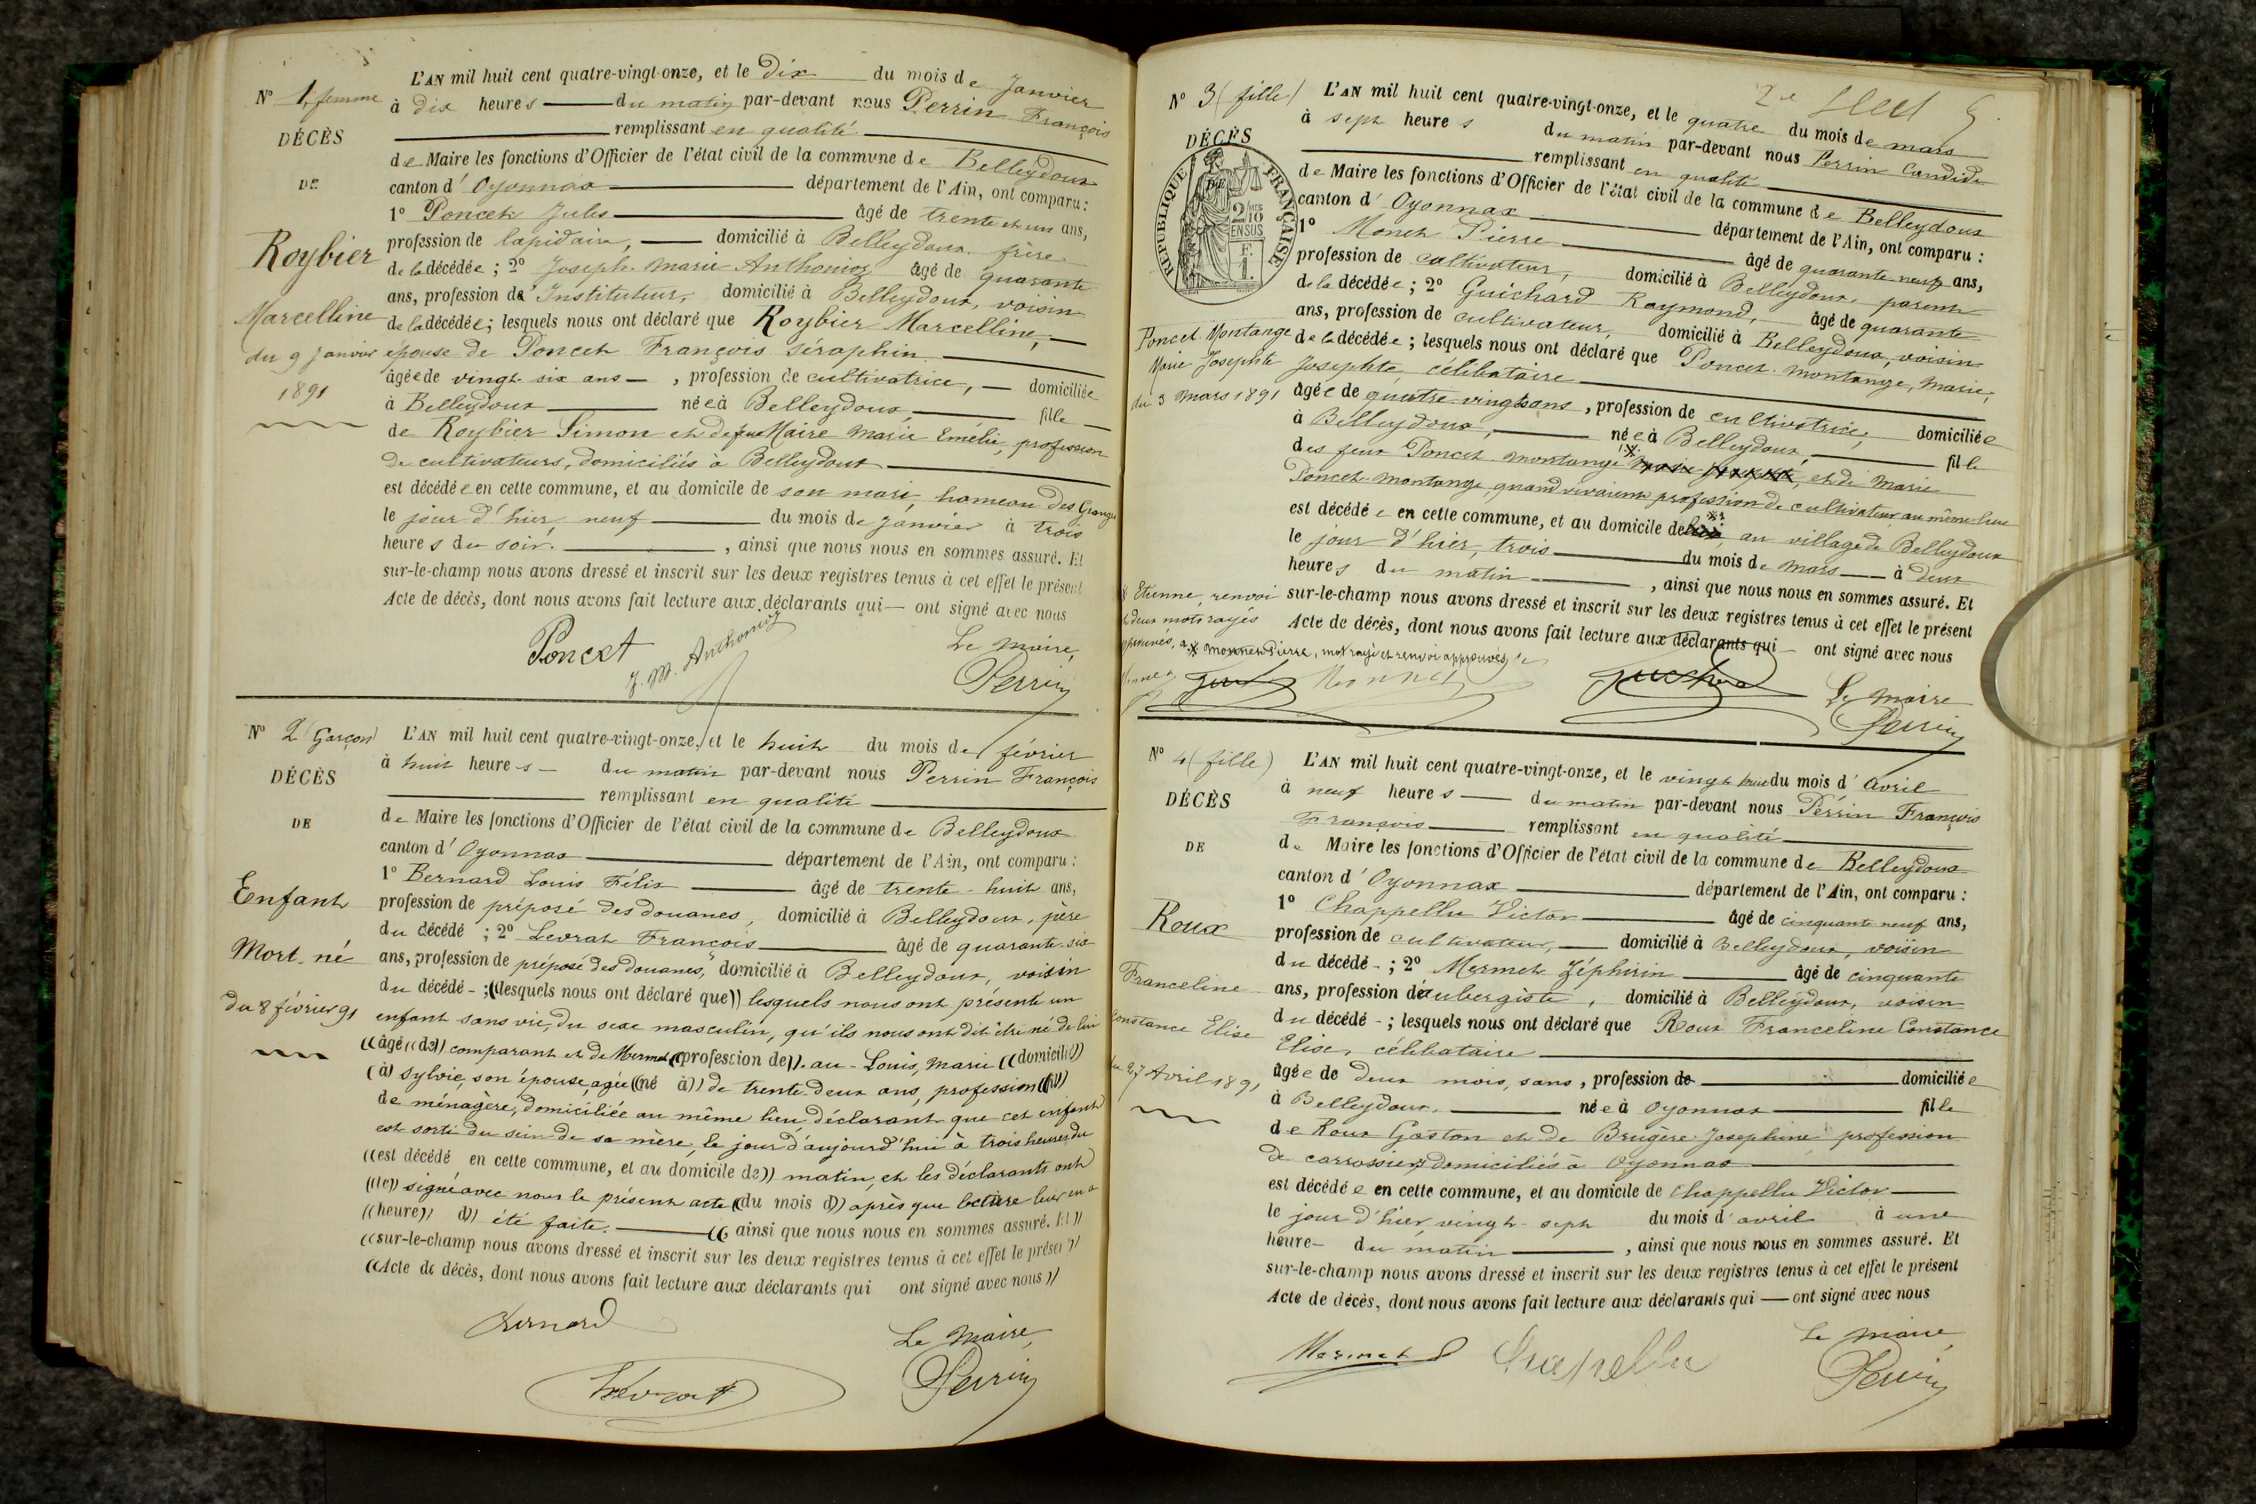 L'AN mil huit cent quatre-vingt-onze, et le dix du mois de Janvier
N° 1, femme
à dix heures du matin par-devant nous Perrin François
DÉCÈS
remplissant en qualité
de Maire les fonctions d'Officier de l'état civil de la commune de Belleydoux
DE
canton d'Oyonnax département de l'Ain, ont comparu :
1° Poncet Jules âgé de trente et un ans,
Roybier
profession de lapidaire, domicilié à Belleydoux frère
de la décédée ; 2° Joseph Marie Anthonioz âgé de quarante
ans, profession de Instituteur, domicilié à Belleydoux, voisin
Marcelline
de la décédée ; lesquels nous ont déclaré que Roybier Marcelline,
du 9 Janvier
épouse de Poncet François Séraphin
1891
âgée de vingt six ans, profession de cultivatrice, domiciliée
à Belleydoux née à Belleydoux fille
de Roybier Simon et de feue Maire Marie Emélie, profession
de cultivateurs, domiciliés à Belleydoux
est décédée en cette commune, et au domicile de son mari, hameau des Granges
le jour d'hier, neuf du mois de janvier à trois
heures du soir. , ainsi que nous nous en sommes assuré. Et
sur-le-champ nous avons dressé et inscrit sur les deux registres tenus à cet effet le présent
Acte de décès, dont nous avons fait lecture aux déclarants qui — ont signé avec nous
Poncet
J. M. Anthonioz
Le Maire,
Perrin
N° 2 (Garçon)
L'AN mil huit cent quatre-vingt-onze, et le huit du mois de février
DÉCÈS
à huit heures — du matin par-devant nous Perrin François
remplissant en qualité
DE
de Maire les fonctions d'Officier de l'état civil de la commune de Belleydoux
canton d'Oyonnax département de l'Ain, ont comparu :
1° Bernard Louis Félix âgé de trente-huit ans,
Eenfant
profession de préposé des douanes, domicilié à Belleydoux, père
du décédé ; 2° Levrat François âgé de quarante-six
Mort-né
ans, profession de préposé des douanes, domicilié à Belleydoux, voisin
du 8 février 91
du décédé - ; ((lesquels nous ont déclaré que)) lesquels nous ont présenté un
enfant sans vie, du sexe masculin, qu'ils nous ont dit être né de lui
((âgé ((de)) comparant et de Mermet ((profession de)). au - Louis, Marie ((domicilié))
(à) Sylvie, son épouse, agée ((né à)) de trente-deux ans, profession ((fil))
de ménagère, domiciliée au même lieu, déclarant que cet enfant
est sorti du sein de sa mère, le jour d'aujourd'hui à trois heures du
((est décédé en cette commune, et au domicile de)) matin, et les déclarants ont
((le)) signé avec nous le présent acte ((du mois d)) après que lecture leur en a
((heure)) d)) été faite. (( ainsi que nous nous en sommes assuré. Et))
((sur-le-champ nous avons dressé et inscrit sur les deux registres tenus à cet effet le présent))
((Acte de décès, dont nous avons fait lecture aux déclarants qui ont signé avec nous))
Bernard
Le Maire,
Levrat
Perrin
N° 3 (fille)
L'AN mil huit cent quatre-vingt-onze, et le quatre du mois de mars
à sept heures du matin par-devant nous Perrin Candide
DÉCÈS
remplissant en qualité
DE
RÉPUBLIQUE FRANÇAISE
2/10 EN SUS
F. 1.
de Maire les fonctions d'Officier de l'état civil de la commune de Belleydoux
canton d'Oyonnax département de l'Ain, ont comparu :
1° Monet Pierre âgé de quarante neuf ans,
profession de cultivateur, domicilié à Belleydoux parent
de la décédée ; 2° Guichard Raymond, âgé de quarante
ans, profession de cultivateur, domicilié à Belleydoux, voisin
Poncet-Montange
de la décédée ; lesquels nous ont déclaré que Poncet-Montange, Marie,
Marie Josephte
Josephte, célibataire
du 3 mars 1891
âgée de quatre-vingts ans, profession de cultivatrice, domiciliée
à Belleydoux, née à Belleydoux, fille
des feux Poncet Montange et de Marie
Poncet-Montange, quand vivaient profession de cultivateur au même lieu
est décédée en cette commune, et au domicile de au village de Belleydoux
le jour d'hier, trois du mois de Mars à deux
heures du matin , ainsi que nous nous en sommes assuré. Et
x Etienne, renvoi
sur-le-champ nous avons dressé et inscrit sur les deux registres tenus à cet effet le présent
deux mots rayés
Acte de décès, dont nous avons fait lecture aux déclarants qui — ont signé avec nous
Pierre, mot rayé et renvoi approuvés
Monnet
Guichard
Le Maire
Perrin
N° 4 (fille)
L'AN mil huit cent quatre-vingt-onze, et le vingt huit du mois d'Avril
à neuf heures du matin par-devant nous Perrin François
DÉCÈS
François remplissant en qualité
DE
de Maire les fonctions d'Officier de l'état civil de la commune de Belleydoux
canton d'Oyonnax département de l'Ain, ont comparu :
1° Chappellu Victor âgé de cinquante neuf ans,
Roux
profession de cultivateur, domicilié à Belleydoux, voisin
du décédé - ; 2° Mermet Zéphirin âgé de cinquante
Franceline
ans, profession d'aubergiste, domicilié à Belleydoux, voisin
Constance Elise
du décédé - ; lesquels nous ont déclaré que Roux Franceline Constance
Elise, célibataire
du 27 Avril 1891
âgée de deux mois, sans, profession de domiciliée
à Belleydoux, née à Oyonnax fille
de Roux Gaston et de Brugère Josephine profession
de carrossiers domiciliés à Oyonnax
est décédée en cette commune, et au domicile de Chappellu Victor
le jour d'hier vingt-sept du mois d'avril à une
heure — du matin , ainsi que nous nous en sommes assuré. Et
sur-le-champ nous avons dressé et inscrit sur les deux registres tenus à cet effet le présent
Acte de décès, dont nous avons fait lecture aux déclarants qui — ont signé avec nous
Mermet
Chappellu
Le Maire
Perrin